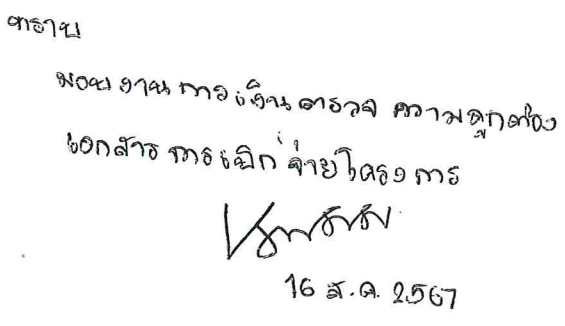 ทราบ
มอบงานการเงินตรวจความถูกต้อง
เอกสารการเบิกจ่ายโครงการ
16 ส.ค. 2567